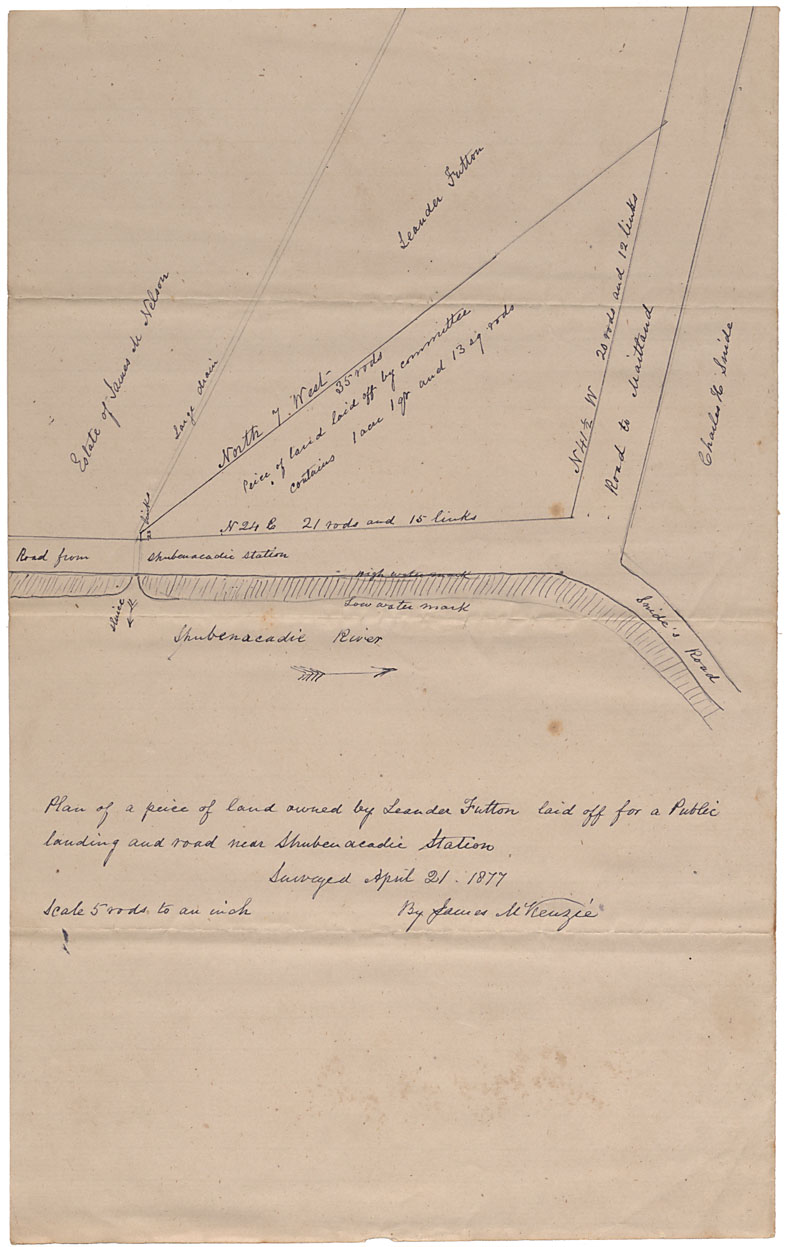 Leander Futton
Estate of James M Nelson
Large drain
North 7 West
35 rods
Peice of land laid off by committee
contains 1 acre 1 qr and 13 sq rods
N 41½ W 20 rods and 12 links
Road to Maitland
Charles H Snide
links
N 24 E 21 rods and 15 links
Road from Shubenacadie station
High water mark
Low water mark
Sluice
Snide's Road
Shubenacadie River
Plan of a peice of land owned by Leander Futton laid off for a Public
landing and road near Shubenacadie Station
Surveyed April 21. 1877
Scale 5 rods to an inch
By James McKenzie